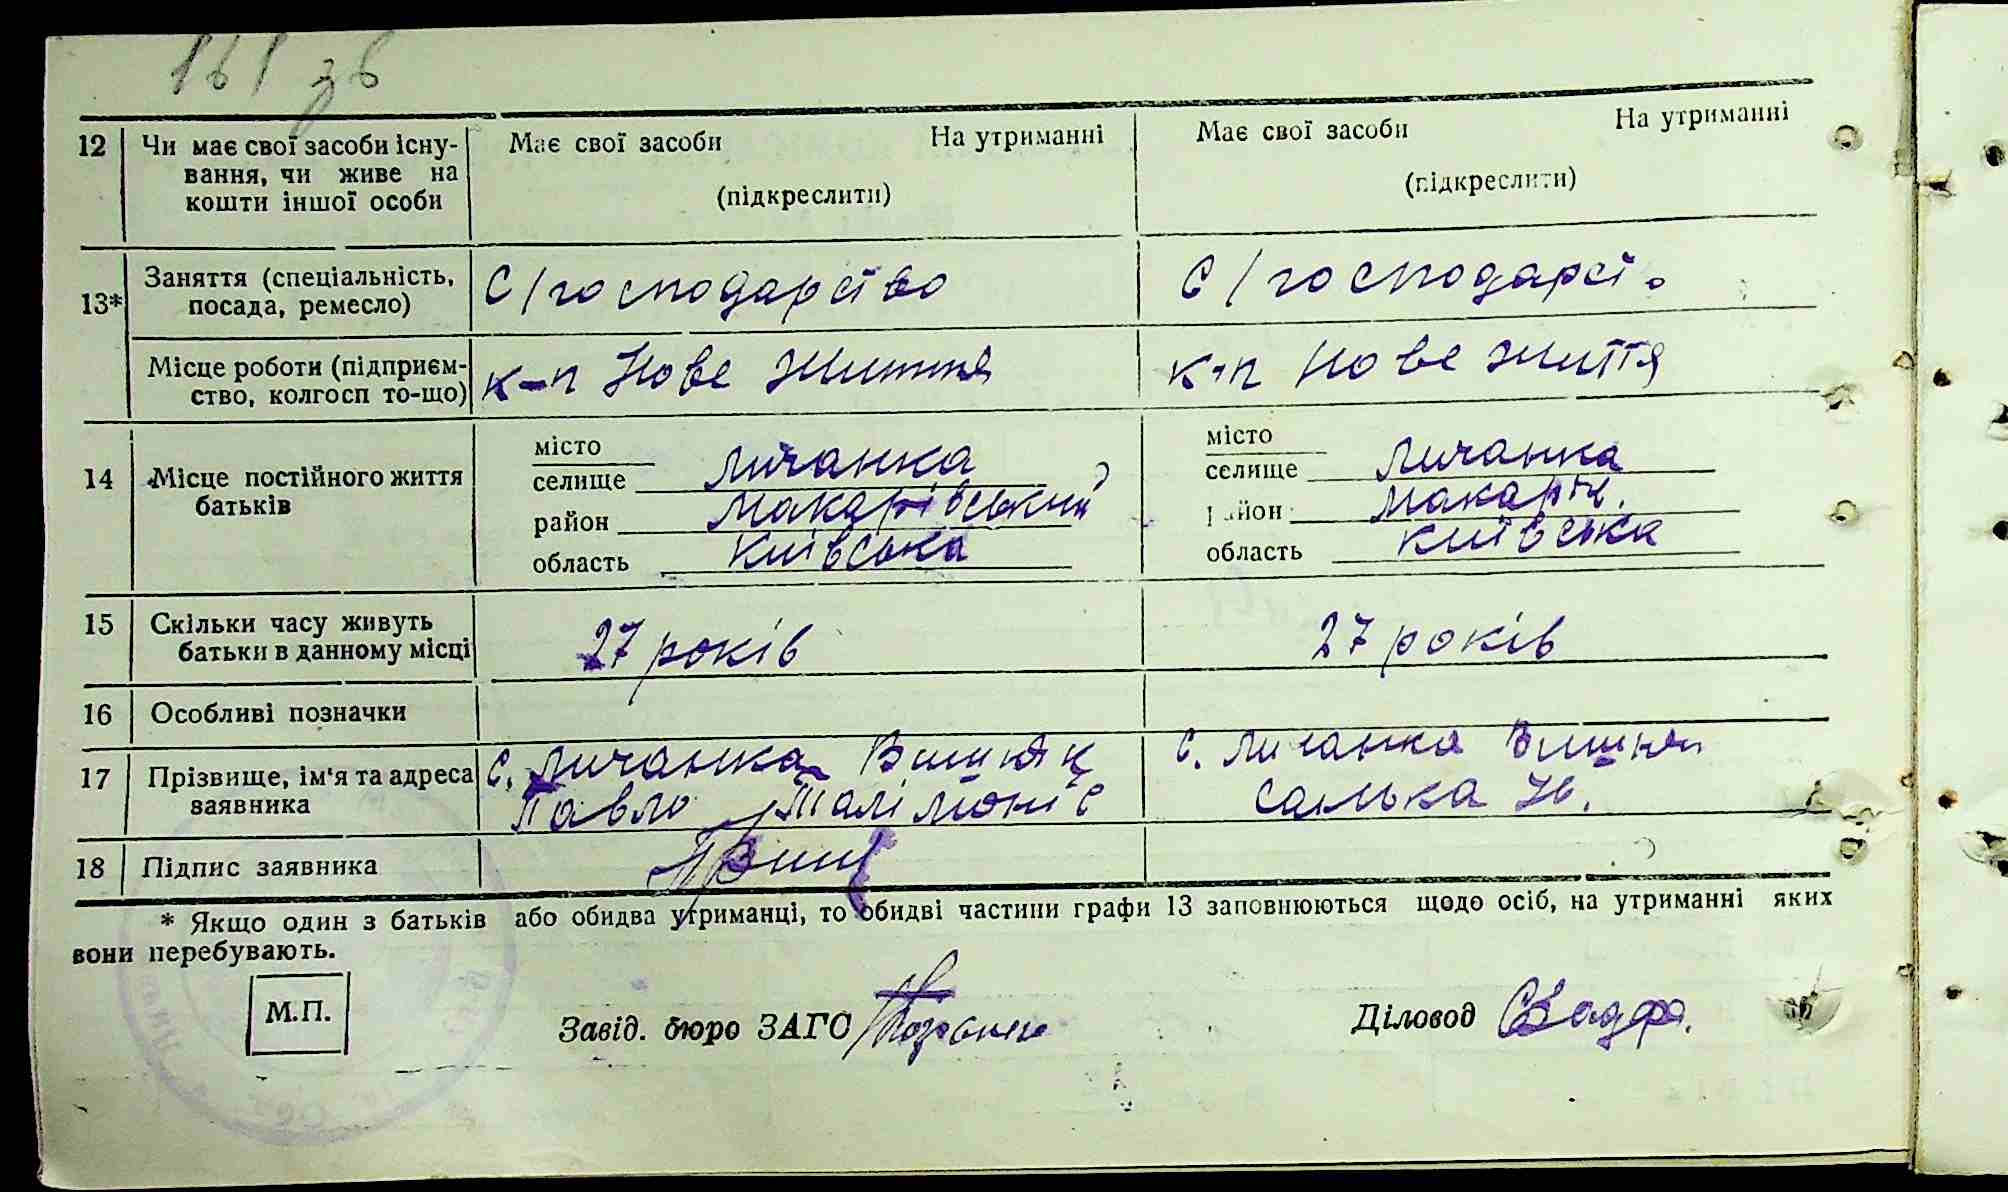 161 зв
12 Чи має свої засоби існу- Має свої засоби На утриманні Має свої засоби На утриманні
вання, чи живе на
кошти іншої особи (підкреслити) (підкреслити)
13* Заняття (спеціальність, С/господарство С/господарст.
посада, ремесло)
Місце роботи (підприєм- к-п Нове життя к-п Нове життя
ство, колгосп то-що)
місто місто
14 Місце постійного життя селище Личанка селище Личанка
батьків район Макарівський район Макарів.
область київська область київська
15 Скільки часу живуть 27 років 27 років
батьки в данному місці
16 Особливі позначки
17 Прізвище, ім'я та адреса с. Личанка Вишняк с. Личанка Вишняк
заявника Павло
18 Підпис заявника
* Якщо один з батьків або обидва утриманці, то обидві частини графи 13 заповнюються щодо осіб, на утриманні яких
вони перебувають.
М.П. Завід. бюро ЗАГС Діловод